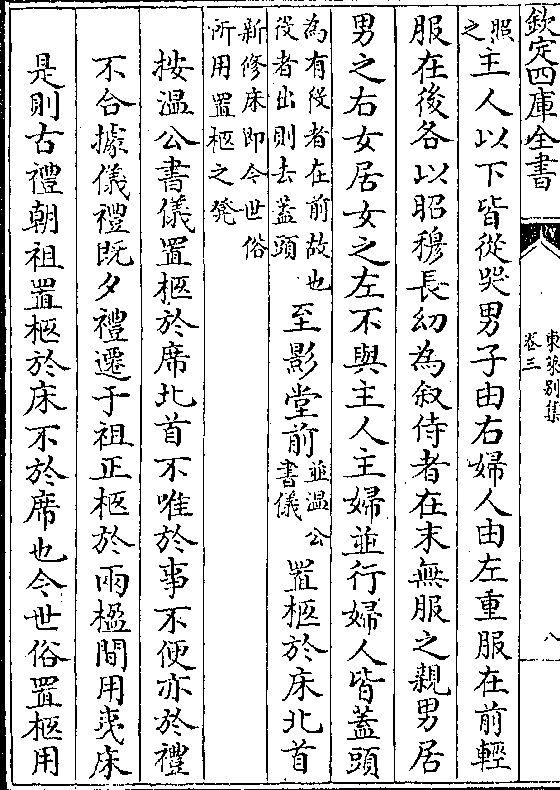 欽定四庫全書
東萊別集
卷三
八
照
之
主人以下皆從哭男子由右婦人由左重服在前輕
服在後各以昭穆長幼為叙侍者在末無服之親男居
男之右女居女之左不與主人主婦並行婦人皆蓋頭
為有役者在前故也
役者出則去蓋頭
至影堂前
並溫公
書儀
置柩於床北首
新修床即今世俗
所用置柩之凳
按溫公書儀置柩於席北首不唯於事不便亦於禮
不合據儀禮既夕禮遷于祖正柩於兩楹間用夷床
是則古禮朝祖置柩於床不於席也今世俗置柩用